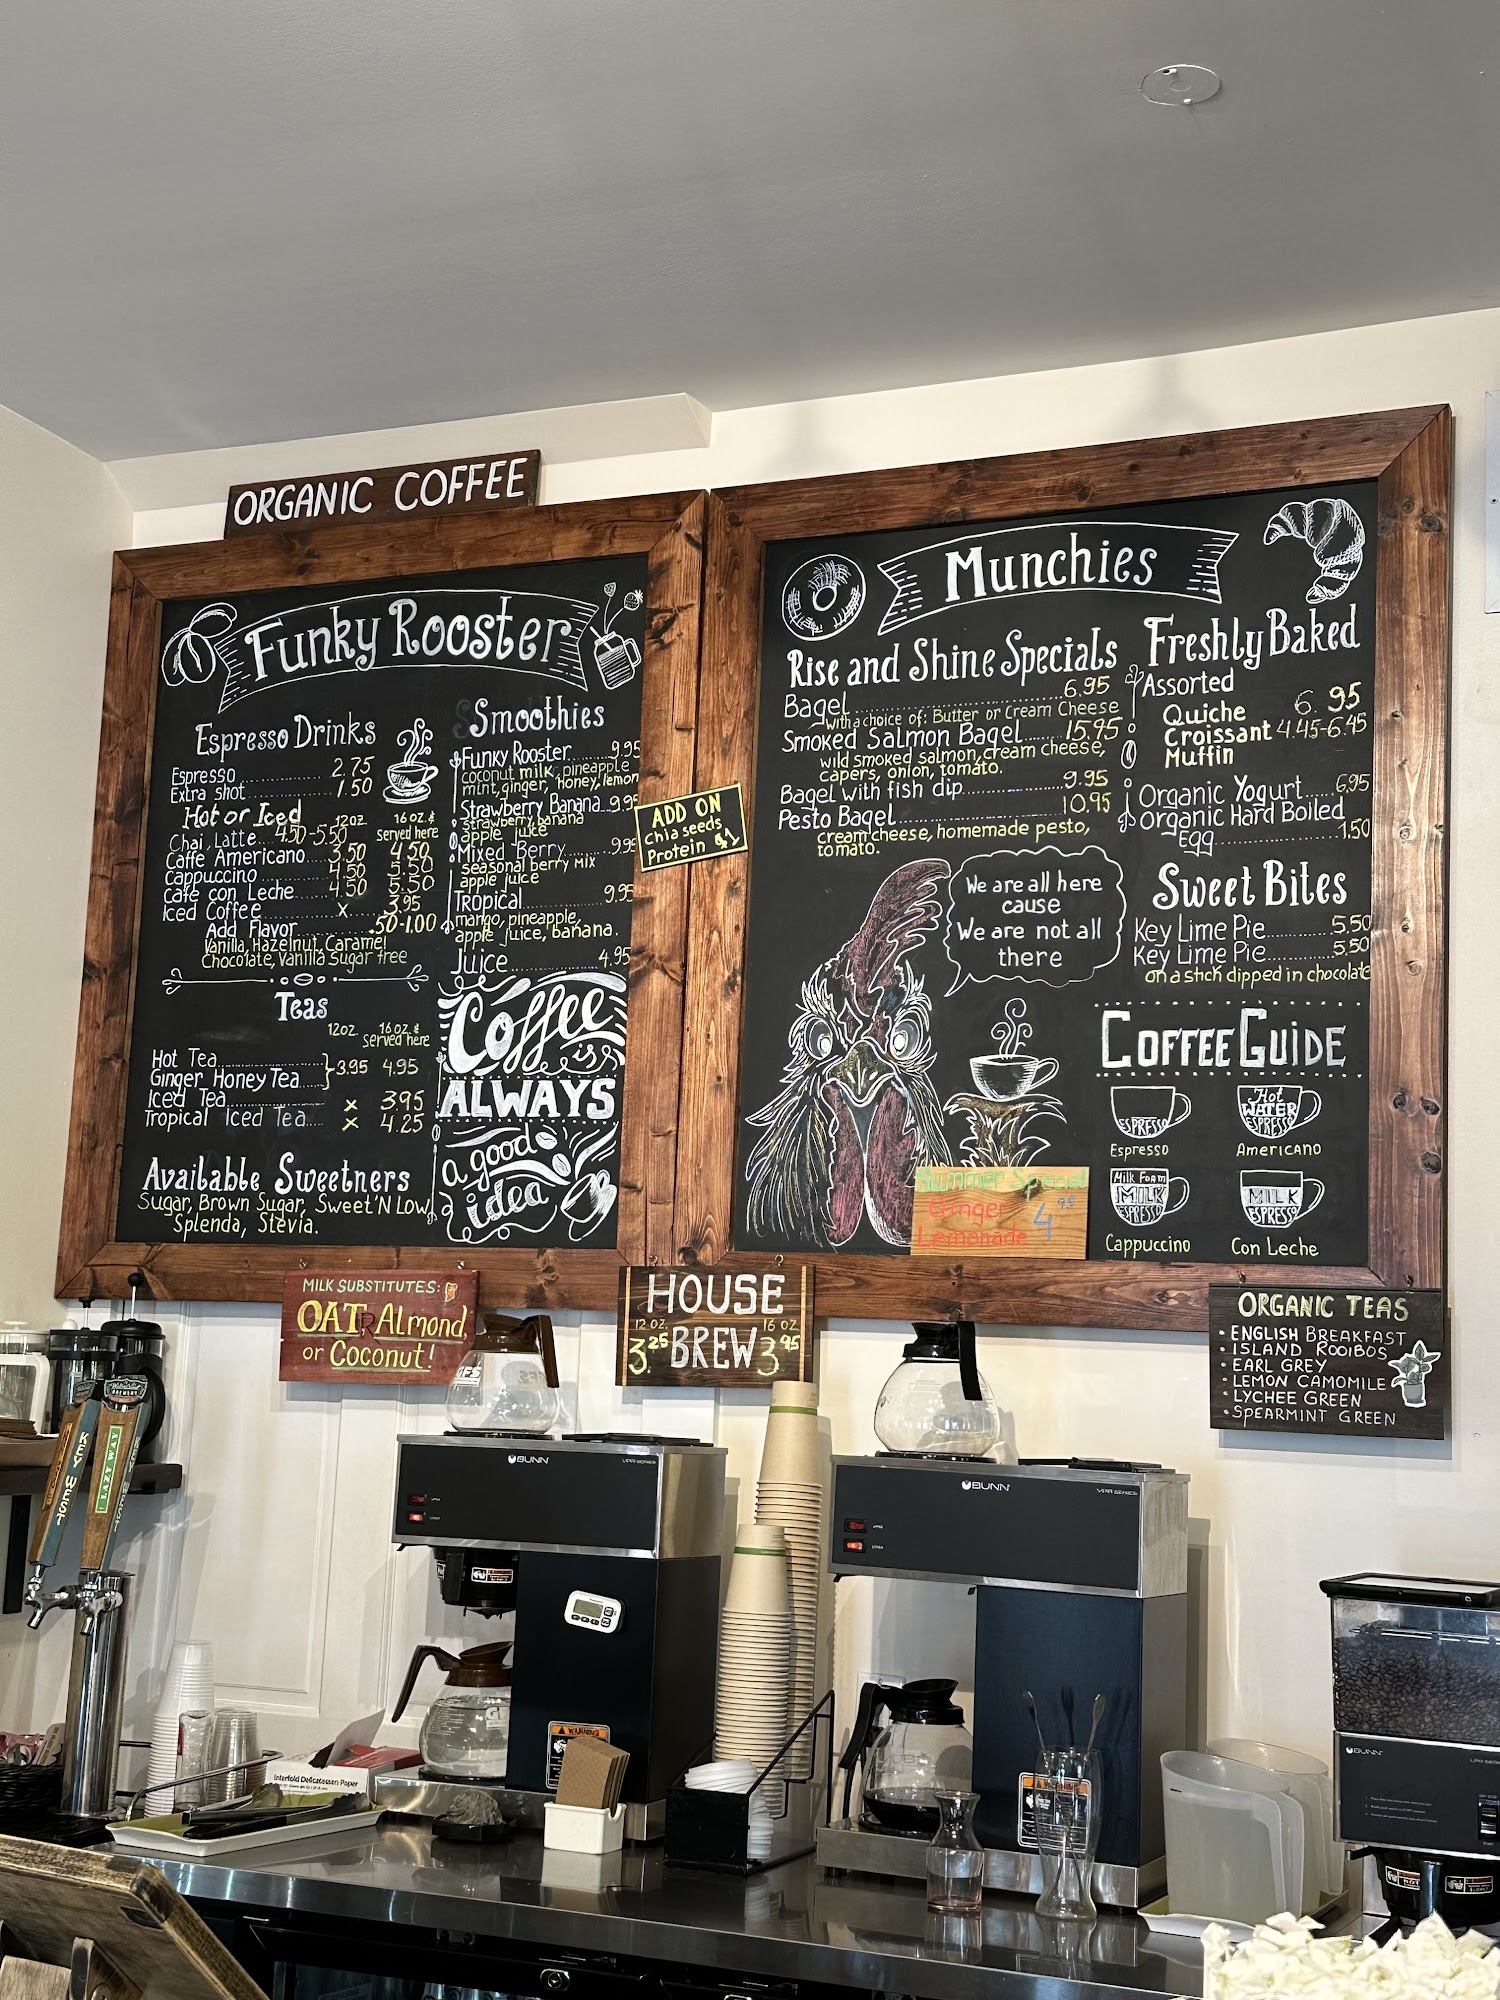 ORGANIC COFFEE
Funky Rooster
Espresso Drinks
Espresso 2.75
Extra shot 1.50
Hot or Iced 12oz. 16oz. & Served here
Chai Latte 4.50-5.50
Caffe Americano 3.50 4.50
Cappuccino 4.50 5.50
Cafe con Leche 4.50 5.50
Iced Coffee x 3.95
Add Flavor .50-1.00
Vanilla, Hazelnut, Caramel
Chocolate, Vanilla Sugar free
Teas
12oz. 16oz. & served here
Hot Tea
Ginger Honey Tea } 3.95 4.95
Iced Tea x 3.95
Tropical Iced Tea x 4.25
Available Sweetners
Sugar, Brown Sugar, Sweet'N Low,
Splenda, Stevia.
Smoothies
Funky Rooster 9.95
coconut milk, pineapple
mint, ginger, honey, lemon
Strawberry Banana 9.95
strawberry, banana
apple juice
Mixed Berry 9.95
seasonal berry mix
apple juice
Tropical 9.95
mango, pineapple,
apple juice, banana.
Juice 4.95
Coffee
is
ALWAYS
a good
idea
ADD ON
chia seeds
Protein $1
Munchies
Rise and Shine Specials
Bagel 6.95
with a choice of: Butter or Cream Cheese
Smoked Salmon Bagel 15.95
wild smoked salmon, cream cheese,
capers, onion, tomato.
Bagel with fish dip 9.95
Pesto Bagel 10.95
cream cheese, homemade pesto,
tomato.
We are all here
cause
We are not all
there
Summer Special
Ginger
Lemonade 4 95
Freshly Baked
Assorted
Quiche 6.95
Croissant 4.45-6.45
Muffin
Organic Yogurt 6.95
Organic Hard Boiled
Egg 1.50
Sweet Bites
Key Lime Pie 5.50
Key Lime Pie 5.50
on a stick dipped in chocolate
COFFEE GUIDE
ESPRESSO
Espresso
Hot
WATER
ESPRESSO
Americano
Milk Foam
MILK
ESPRESSO
Cappuccino
MILK
ESPRESSO
Con Leche
MILK SUBSTITUTES:
OAT, Almond,
or Coconut!
HOUSE
BREW
12 OZ. 3.25
16 OZ. 3.95
ORGANIC TEAS
• ENGLISH BREAKFAST
• ISLAND ROOIBOS
• EARL GREY
• LEMON CAMOMILE
• LYCHEE GREEN
• SPEARMINT GREEN
KEY WEST
LAZY WAY
BUNN
VPR SERIES
BUNN
VPR SERIES
WARNING
WARNING
Interfold Delicatessen Paper
BUNN